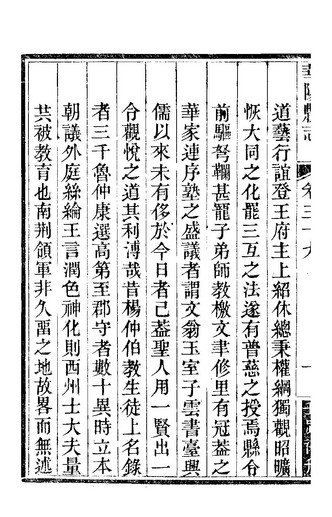 華陽縣志
卷三十九
一
道藝行誼登王府主上紹休總秉權綱獨觀昭曠
恢大同之化罷三互之法遂有普慈之授焉縣令
前驅弩韊甚寵子弟師教檄文聿修里有冠葢之
華家連序塾之盛議者謂文翁玉室子雲書臺興
儒以來未有侈於今日者已葢聖人用一賢出一
令觀悅之道其利溥哉昔楊仲伯教生徒上名錄
者三千魯仲康選高第至郡守者數十異時立本
朝議外庭絲綸王言潤色神化則西州士大夫量
其被教育也南荆領軍非久畱之地故畧而無述